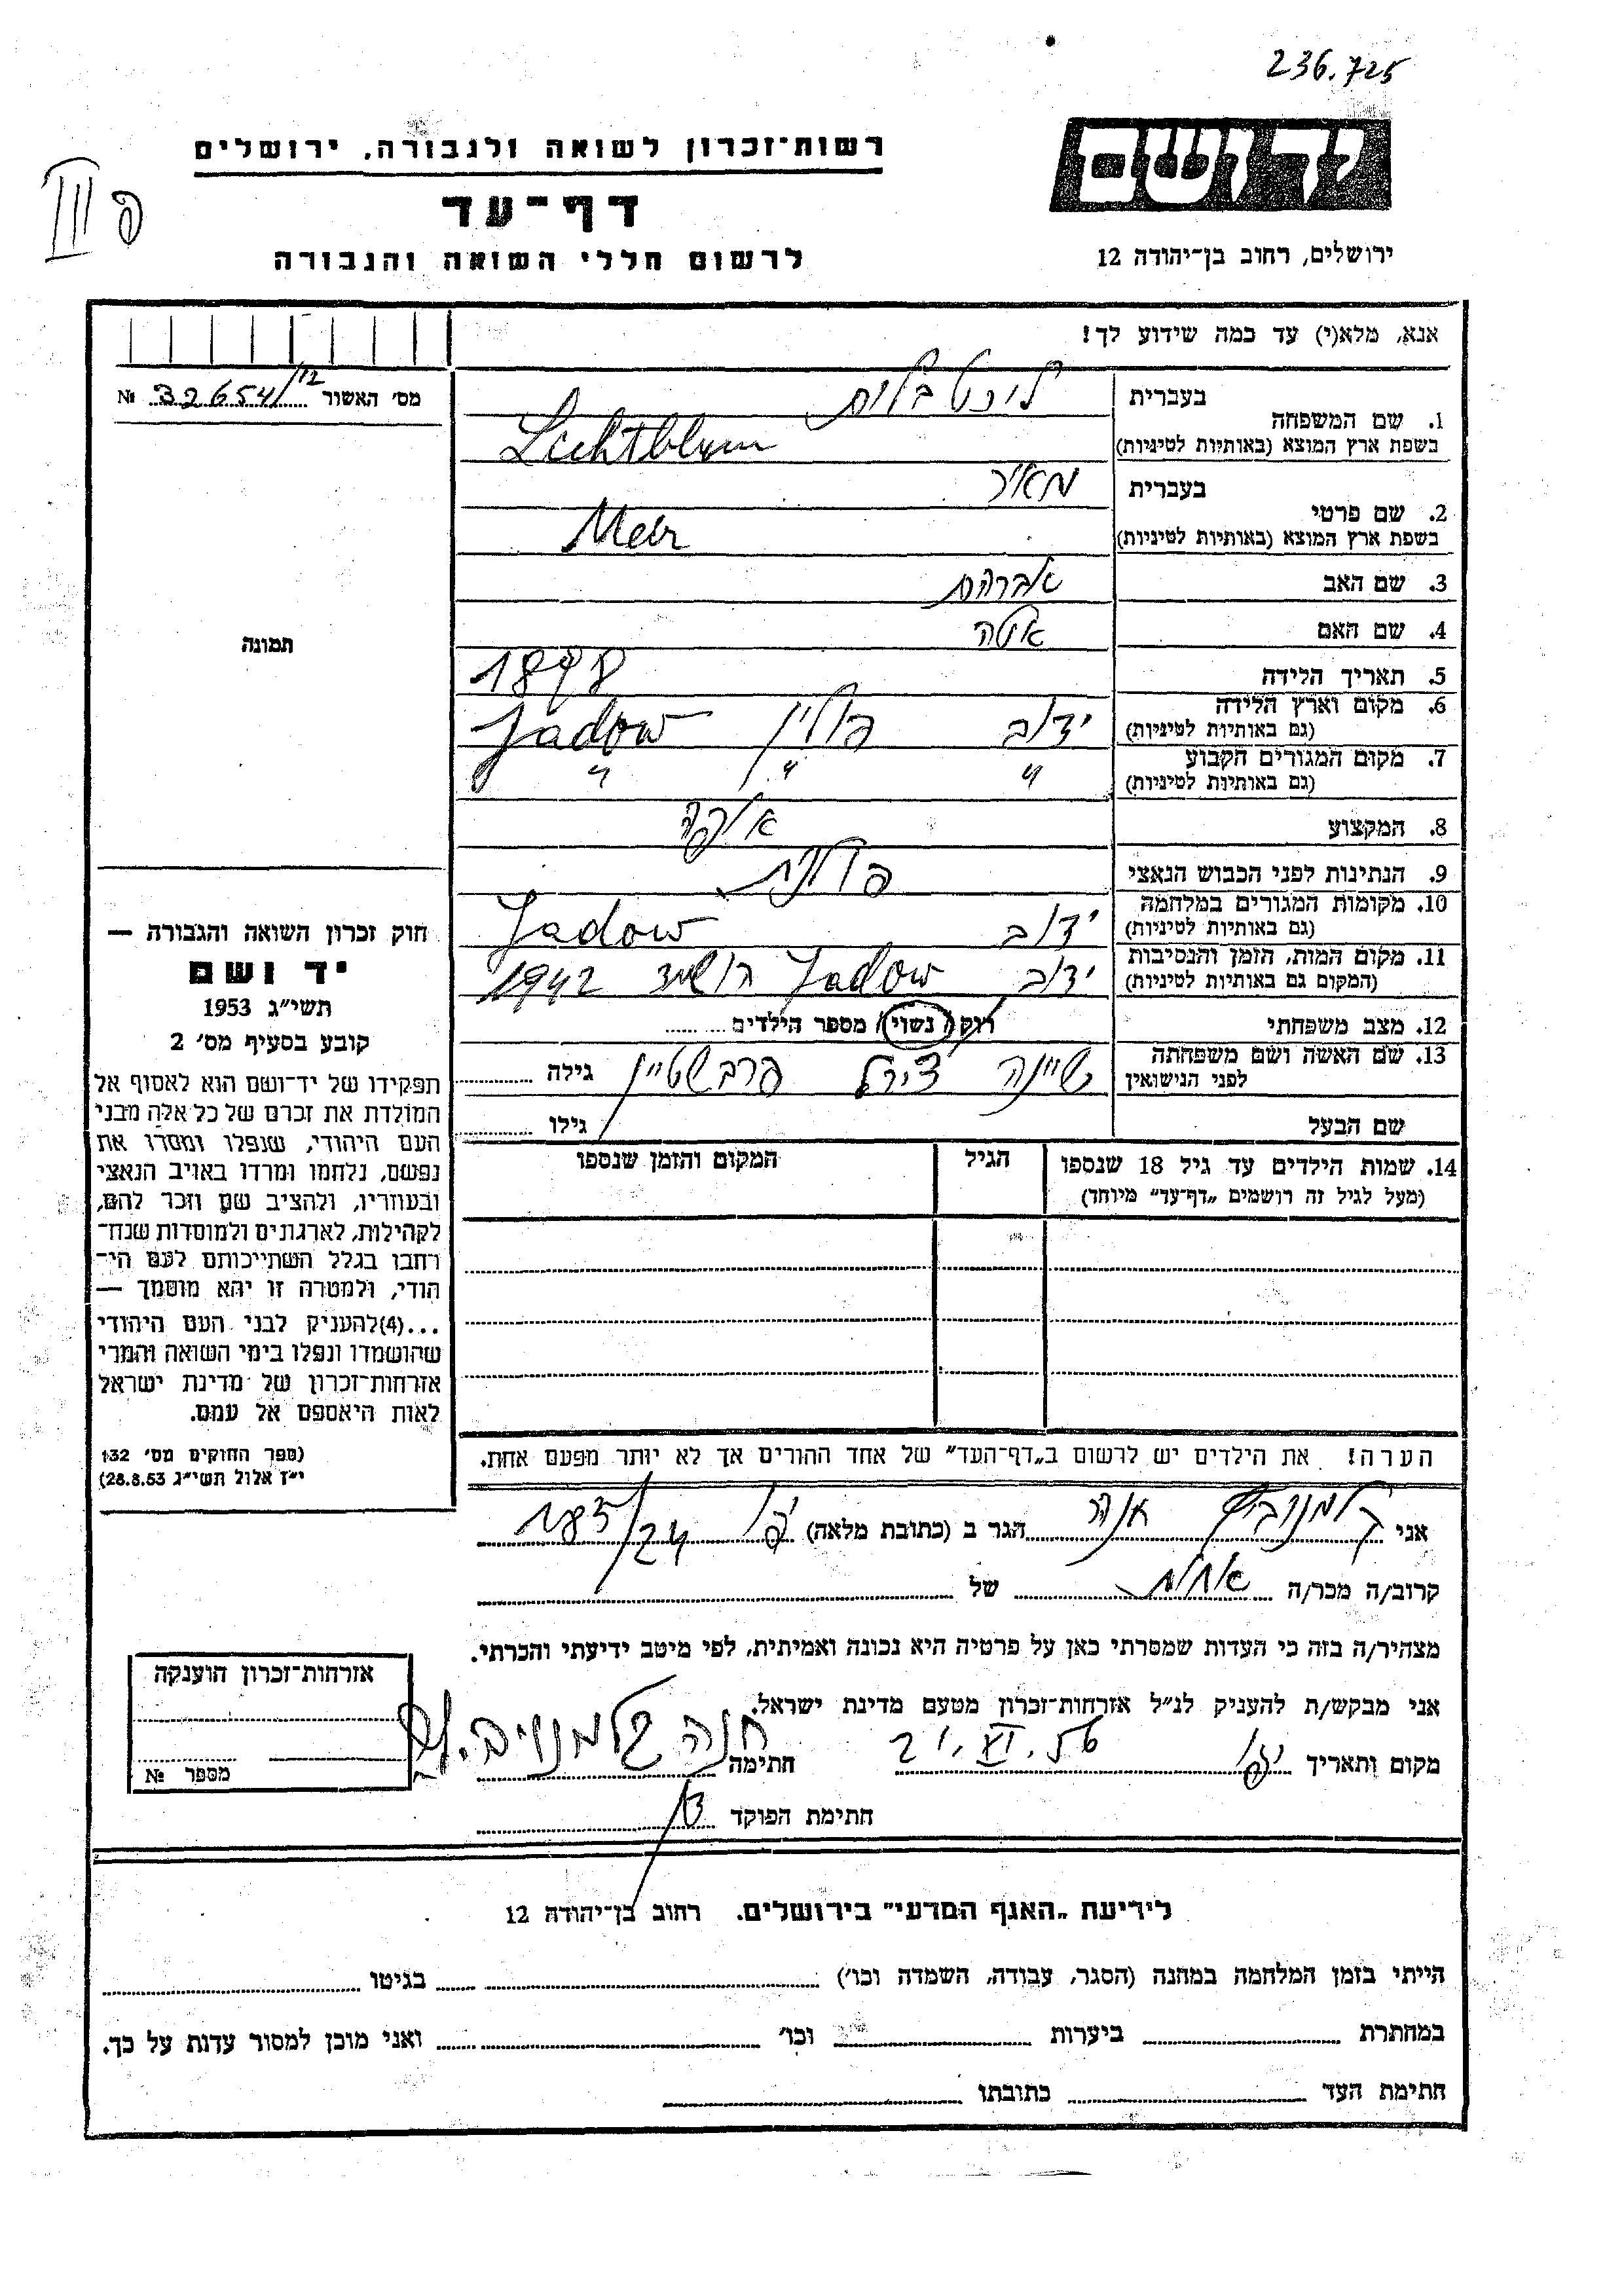 236.725
רשות־זכרון לשואה ולגבורה, ירושלים
דף־עד
לרשום חללי השואה והגבורה
יד ושם
ירושלים, רחוב בן־יהודה 12
III פ
אנא, מלא(י) עד כמה שידוע לך!
מס׳ האשור 32654/12 №
תמונה
1. שם המשפחה
בעברית ליכטבלום
בשפת ארץ המוצא (באותיות לטיניות) Lichtblum
2. שם פרטי
בעברית מאיר
בשפת ארץ המוצא (באותיות לטיניות) Meir
3. שם האב אברהם
4. שם האם איטה
5. תאריך הלידה 1898
6. מקום וארץ הלידה ידוב פולין Jadow
(גם באותיות לטיניות)
7. מקום המגורים הקבוע " " "
(גם באותיות לטיניות)
8. המקצוע אופה
9. הנתינות לפני הכבוש הנאצי פולנית
10. מקומות המגורים במלחמה ידוב Jadow
(גם באותיות לטיניות)
11. מקום המות, הזמן והנסיבות ידוב Jadow הושמד 1942
(המקום גם באותיות לטיניות)
12. מצב משפחתי רוק/ נשוי/ מספר הילדים
13. שם האשה ושם משפחתה שיינה צירל פרבשטיין גילה
לפני הנישואין
שם הבעל גילו
14. שמות הילדים עד גיל 18 שנספו הגיל המקום והזמן שנספו
(מעל לגיל זה רושמים „דף־עד" מיוחד)
הערה! את הילדים יש לרשום ב„דף־העד" של אחד ההורים אך לא יותר מפעם אחת.
חוק זכרון השואה והגבורה —
יד ושם
תשי״ג 1953
קובע בסעיף מס׳ 2
תפקידו של יד־ושם הוא לאסוף אל
המולדת את זכרם של כל אלה מבני
העם היהודי, שנפלו ומסרו את
נפשם, נלחמו ומרדו באויב הנאצי
ובעוזריו, ולהציב שם וזכר להם,
לקהילות, לארגונים ולמוסדות שנח־
רבו בגלל השתייכותם לעם הי־
הודי, ולמטרה זו יהא מוסמך —
...(4)להעניק לבני העם היהודי
שהושמדו ונפלו בימי השואה והמרי
אזרחות־זכרון של מדינת ישראל
לאות היאספם אל עמם.
(ספר החוקים מס׳ 132
י״ז אלול תשי״ג 28.8.53)
אני קלמנוביץ חנה הגר ב (כתובת מלאה) יפו 24/185
קרוב/ה מכר/ה אחות של
מצהיר/ה בזה כי העדות שמסרתי כאן על פרטיה היא נכונה ואמיתית, לפי מיטב ידיעתי והכרתי.
אני מבקש/ת להעניק לנ״ל אזרחות־זכרון מטעם מדינת ישראל.
מקום ותאריך יפו 21.VI.56 חתימה חנה קלמנוביץ
חתימת הפוקד
אזרחות־זכרון הוענקה
מספר №
לידיעת „האגף המדעי" בירושלים. רחוב בן־יהודה 12
הייתי בזמן המלחמה במחנה (הסגר, עבודה, השמדה וכו׳) בגיטו
במחתרת ביערות וכו׳ ואני מוכן למסור עדות על כך.
חתימת העד כתובתו